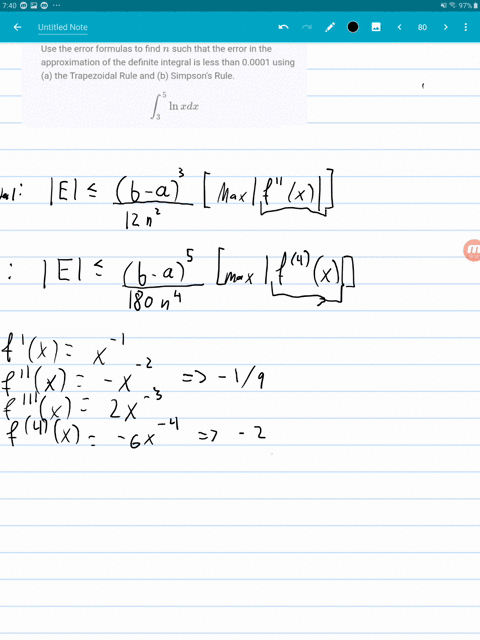 7:40
97%
Untitled Note
80
Use the error formulas to find n such that the error in the
approximation of the definite integral is less than 0.0001 using
(a) the Trapezoidal Rule and (b) Simpson's Rule.
∫₃⁵ ln xdx
: |E| ≤ (b-a)³/12n² [Max|f''(x)|]
: |E| ≤ (b-a)⁵/180n⁴ [max|f⁽⁴⁾(x)|]
f'(x) = x⁻¹
f''(x) = -x⁻² => -1/9
f'''(x) = 2x⁻³
f⁽⁴⁾(x) = -6x⁻⁴ => -2